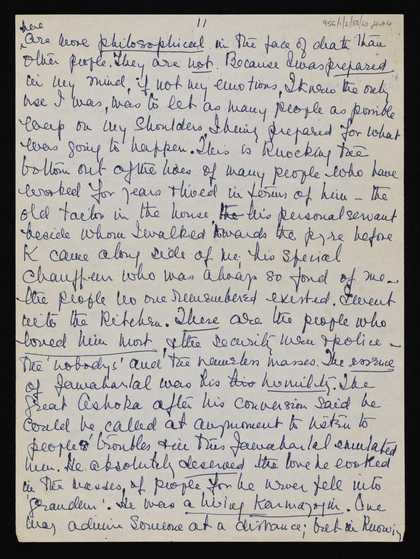 11
here
are more philosophical in the face of death than
other people. They are not. Because I was prepared
in my mind, if not my emotions, I knew the only
use I was, was to let as many people as possible
weep on my shoulders, I being prepared for what
was going to happen. This is knocking the
bottom out of the lives of many people who have
worked for years & lived in terms of him — the
old tailor in the house, his personal servant
beside whom I walked towards the pyre before
K came along side of me, his special
chauffeur who was always so fond of me —
the people no one remembered existed. I went
into the kitchen. There are the people who
loved him most, & the security men & police —
the 'nobodys' and the nameless masses. The essence
of Jawaharlal was his humility. The
great Ashoka after his conversion said he
could be called at any moment to listen to
people's troubles & in this Jawaharlal emulated
him. He absolutely deserved the love he evoked
in the masses of people for he never fell into
'grandeur'. He was a living Karmayogin. One
may admire someone at a distance; but in knowing